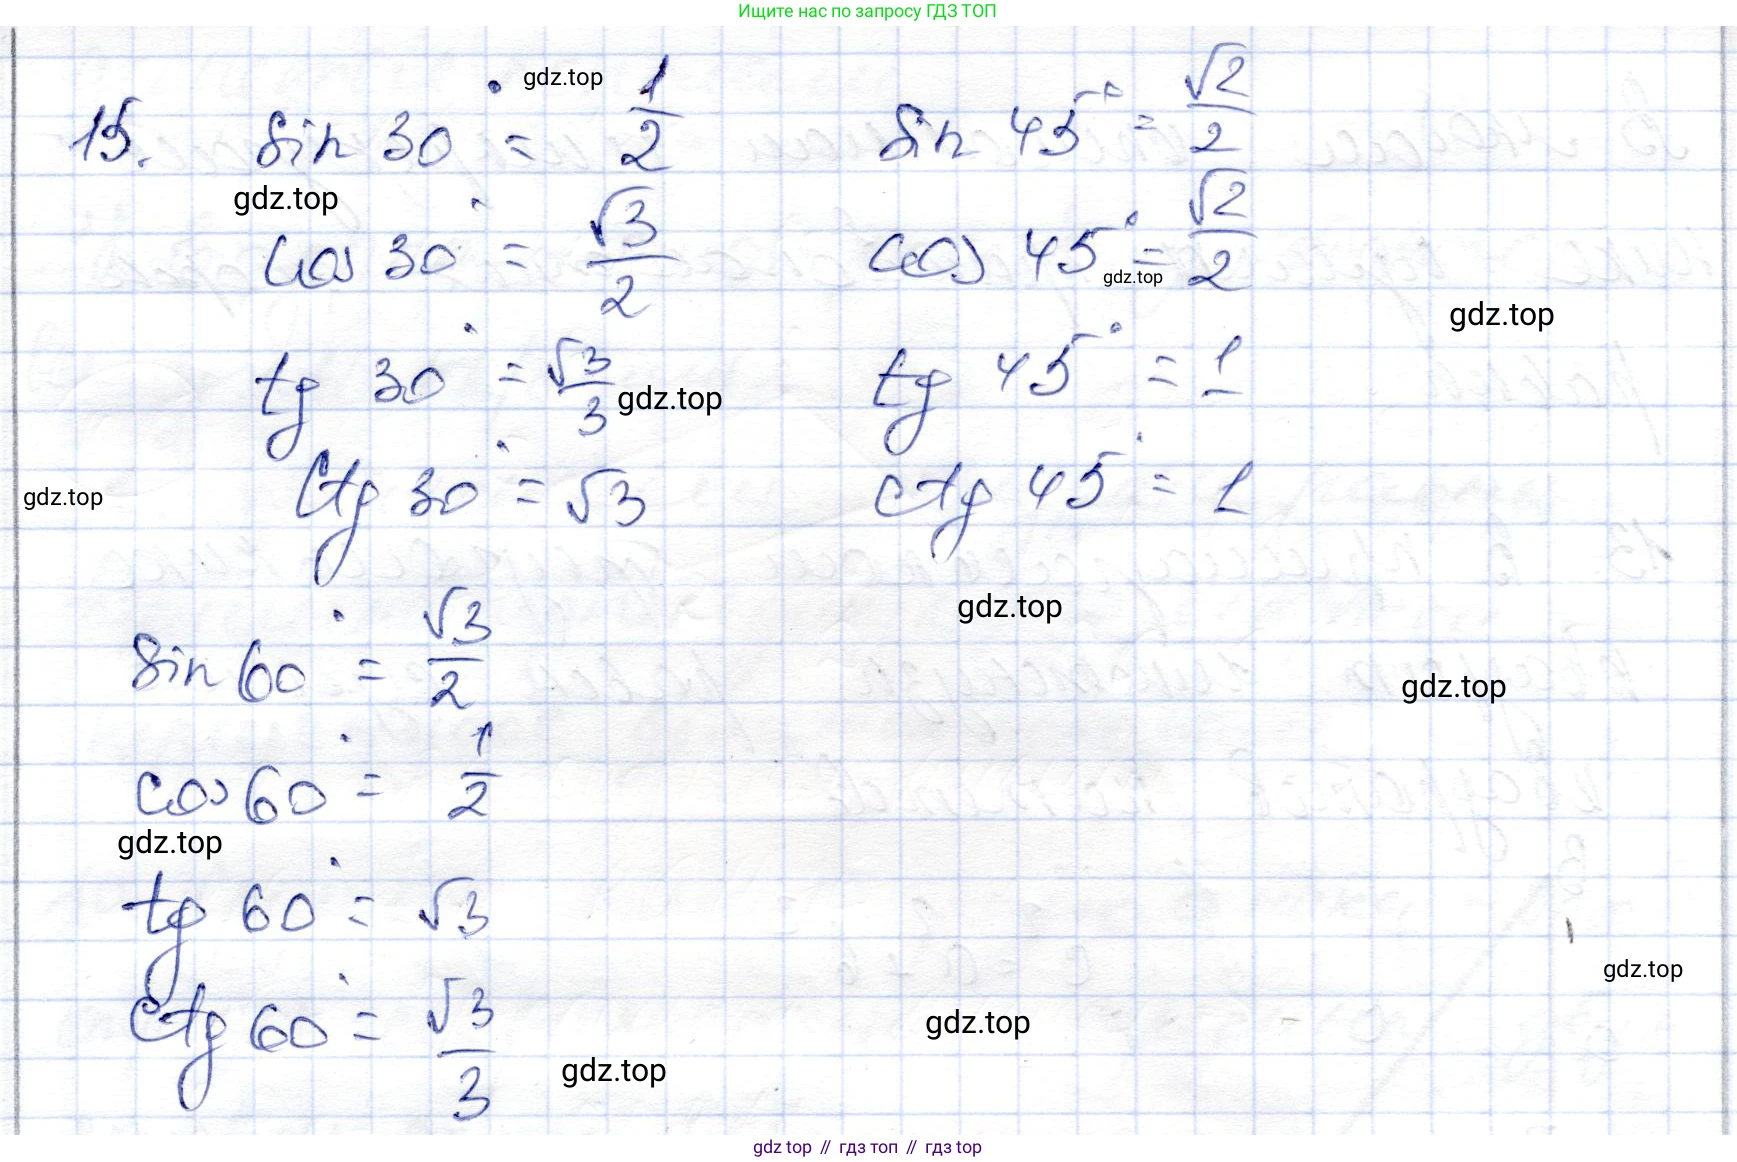 Ищите нас по запросу ГДЗ ТОП
gdz.top
15. sin 30° = 1/2
sin 45° = √2/2
gdz.top
cos 30° = √3/2
cos 45° = √2/2
gdz.top
gdz.top
tg 30° = √3/3
gdz.top
tg 45° = 1
gdz.top
ctg 30° = √3
ctg 45° = 1
gdz.top
sin 60° = √3/2
gdz.top
cos 60° = 1/2
gdz.top
tg 60° = √3
gdz.top
ctg 60° = √3/3
gdz.top
gdz.top
gdz top // гдз топ // gdz top